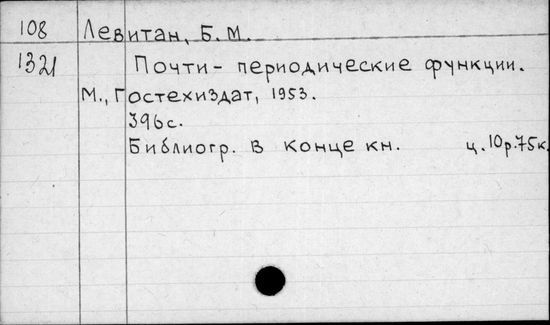 108 Левитан, Б.М.
1321 Почти-периодические функции.
М., Гостехиздат, 1953.
396с.
Библиогр. в конце кн. ц.10р.75к.